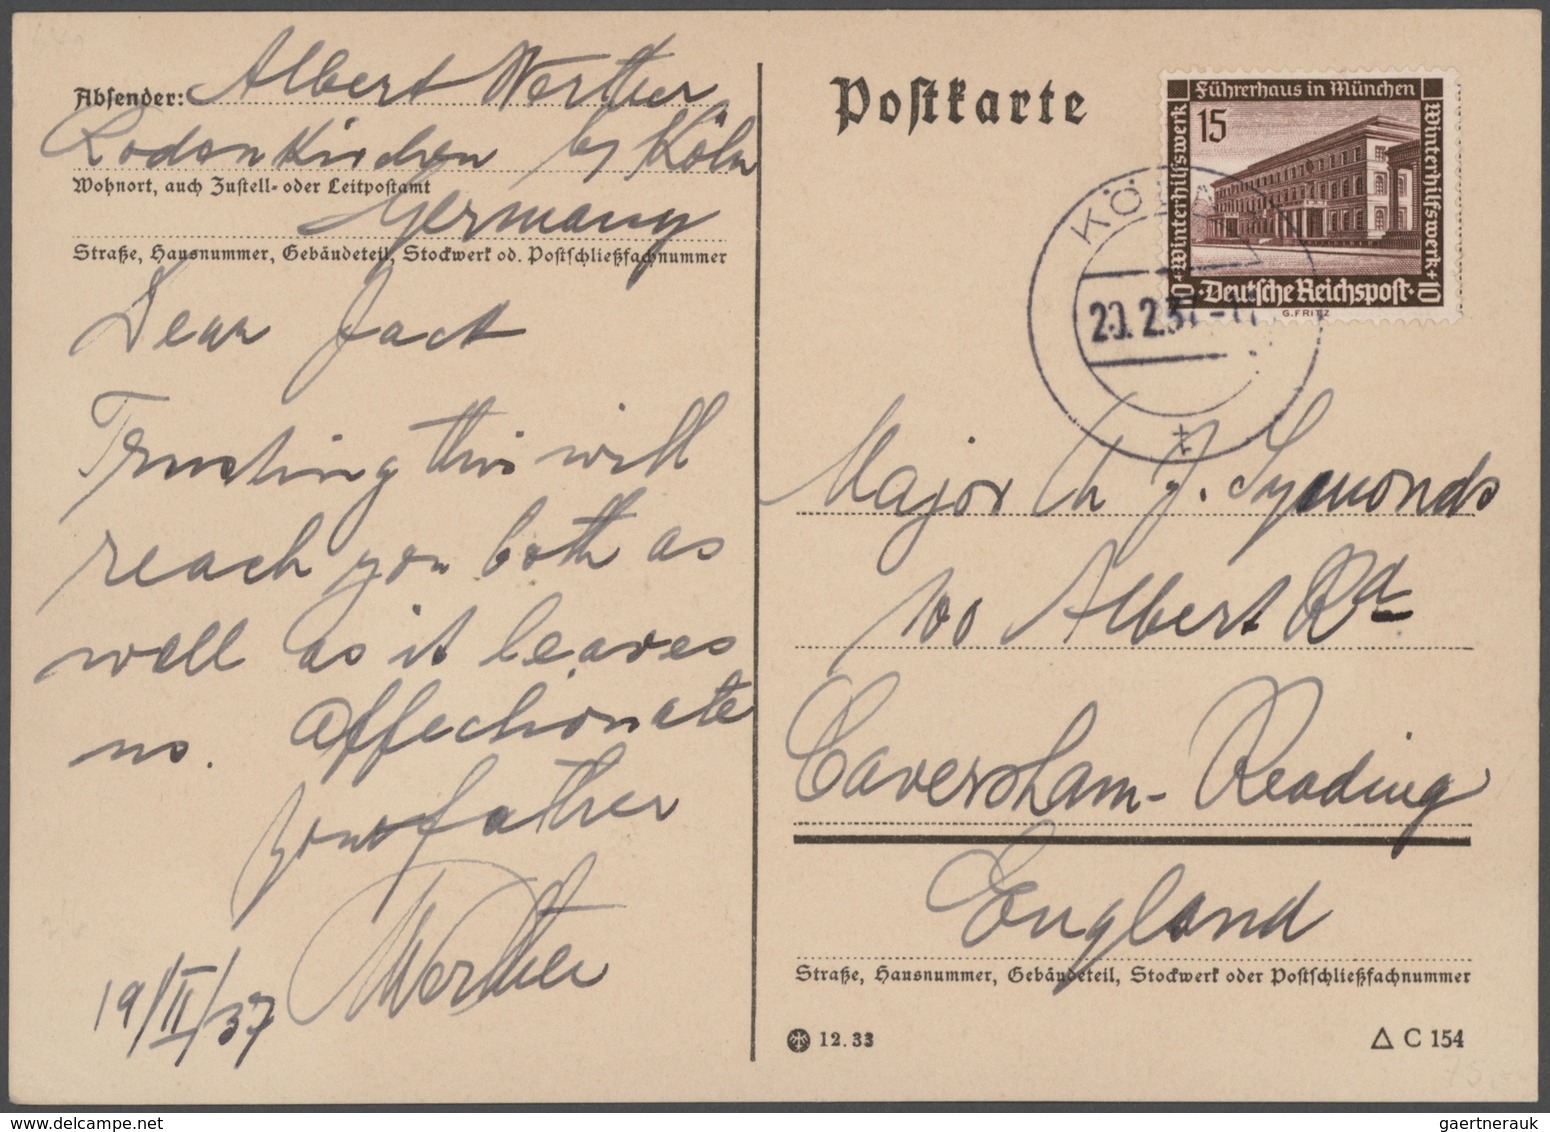 Absender: Albert Werther
Rodenkirchen by Köln
Wohnort, auch Zustell- oder Leitpostamt
Germany
Straße, Hausnummer, Gebäudeteil, Stockwerk od. Postschließfachnummer
Dear Jack
Trusting this will
reach you both as
well as it leaves
us. Affectionate
your father
Werther
19/II/37
Postkarte
Führerhaus in München
Winterhilfswerk
15
Winterhilfswerk + 10
10 + Winterhilfswerk
Deutsche Reichspost
G. FRITZ
KÖLN
20.2.37
Major Ch J. Symonds
100 Albert Rd
Caversham - Reading
England
Straße, Hausnummer, Gebäudeteil, Stockwerk oder Postschließfachnummer
12.33
△ C 154
gaertnerauk